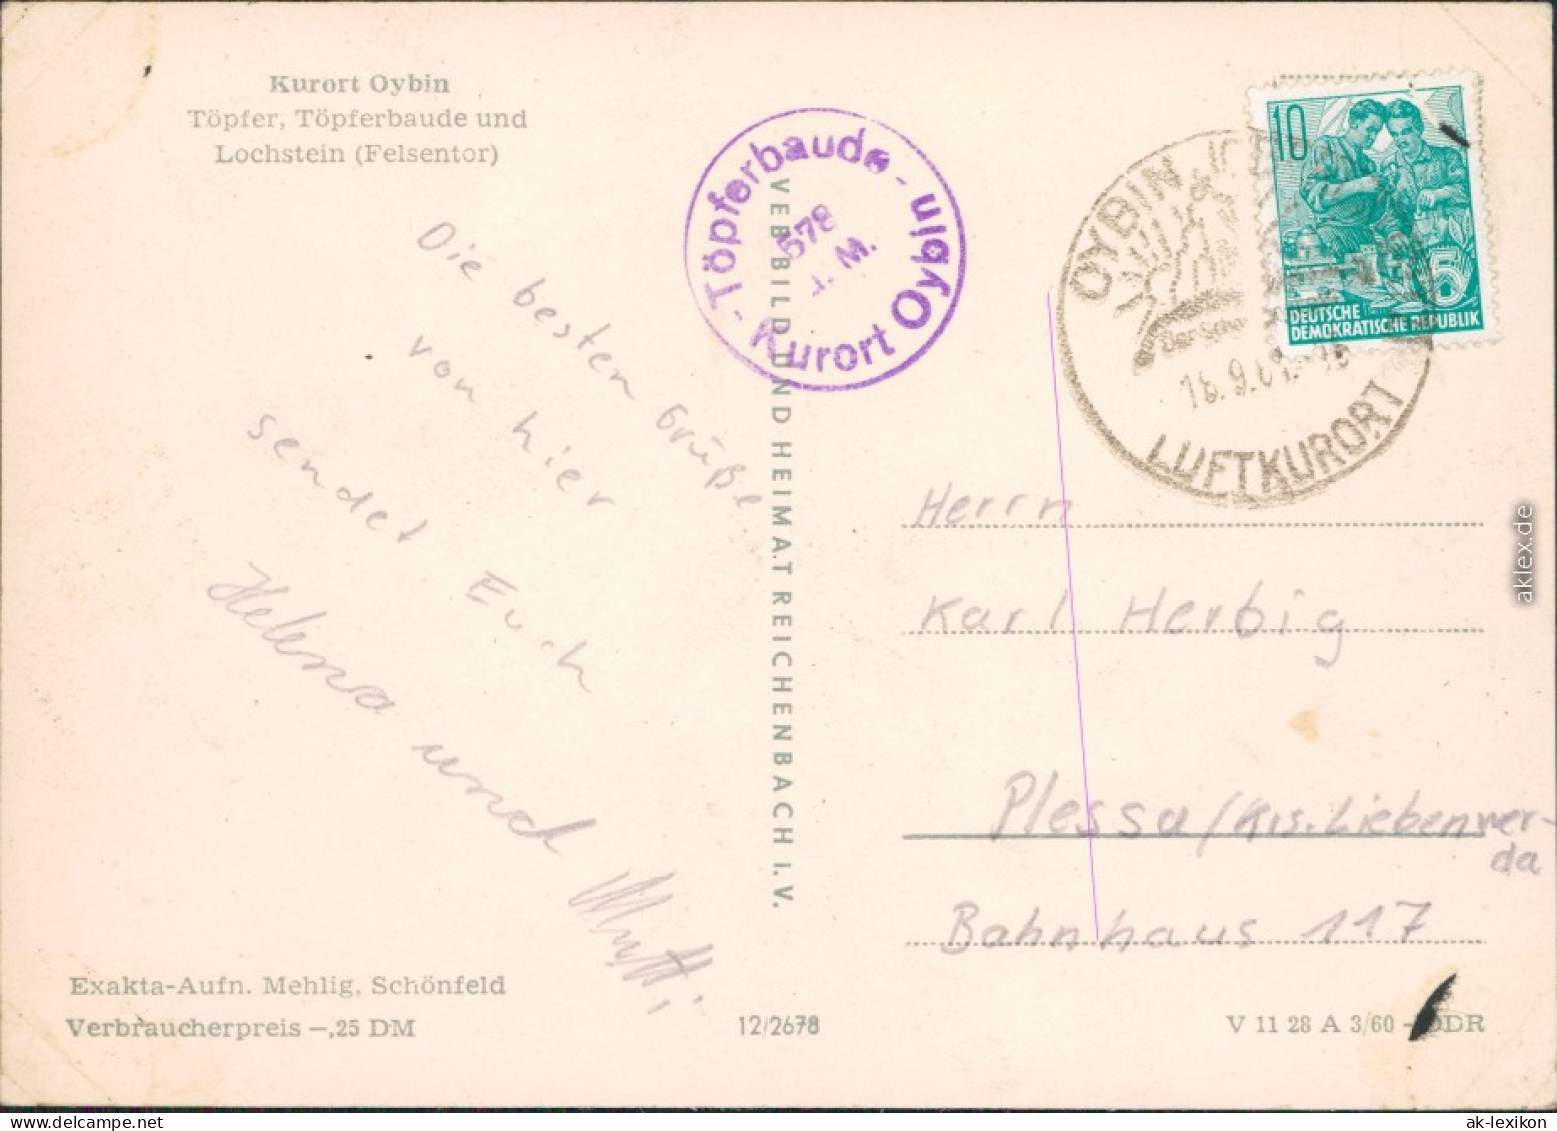 Kurort Oybin
Töpfer, Töpferbaude und
Lochstein (Felsentor)
Die besten Grüße
von hier
sendet Euch
Helena und
Mutti
Exakta-Aufn. Mehlig, Schönfeld
Verbraucherpreis –,25 DM
12/2678
VEB BILD UND HEIMAT REICHENBACH I. V.
- Töpferbaude - Kurort Oybin
578
M.
10
5
DEUTSCHE
DEMOKRATISCHE REPUBLIK
OYBIN
LUFTKURORT
Herrn
Karl Herbig
Plessa / Krs. Liebenwer-
da
Bahnhaus 117
V 11 28 A 3/60 - DDR
aklex.de
ak-lexikon